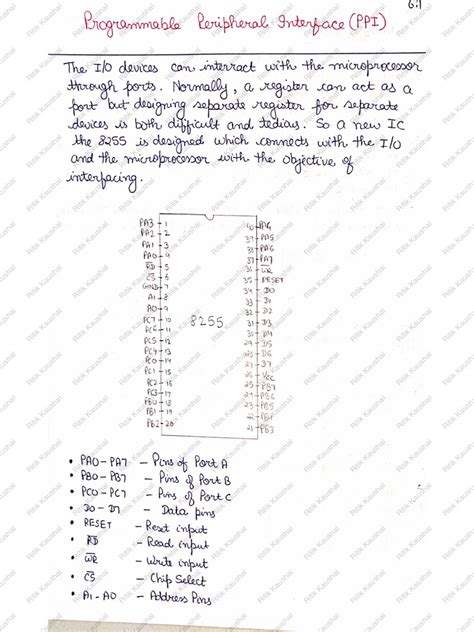 6.1
Programmable Peripheral Interface (PPI)
The I/O devices can interract with the microprocessor
through ports. Normally, a register can act as a
port but designing separate register for separate
devices is both difficult and tedious. So a new IC
the 8255 is designed which connects with the I/O
and the microprocessor with the objective of
interfacing.
PA3 1 40 PA4
PA2 2 39 PA5
PA1 3 38 PA6
PA0 4 37 PA7
R̅D̅ 5 36 W̅R̅
C̅S̅ 6 35 RESET
GND 7 34 D0
A1 8 33 D1
A0 9 32 D2
PC7 10 8255 31 D3
PC6 11 30 D4
PC5 12 29 D5
PC4 13 28 D6
PC0 14 27 D7
PC1 15 26 Vcc
PC2 16 25 PB7
PC3 17 24 PB6
PB0 18 23 PB5
PB1 19 22 PB4
PB2 20 21 PB3
• PA0 - PA7 - Pins of Port A
• PB0 - PB7 - Pins of Port B
• PC0 - PC7 - Pins of Port C
• D0 - D7 - Data pins
• RESET - Reset input
• R̅D̅ - Read input
• W̅R̅ - Write input
• C̅S̅ - Chip Select
• A1 - A0 - Address Pins
Ritik Kaushal